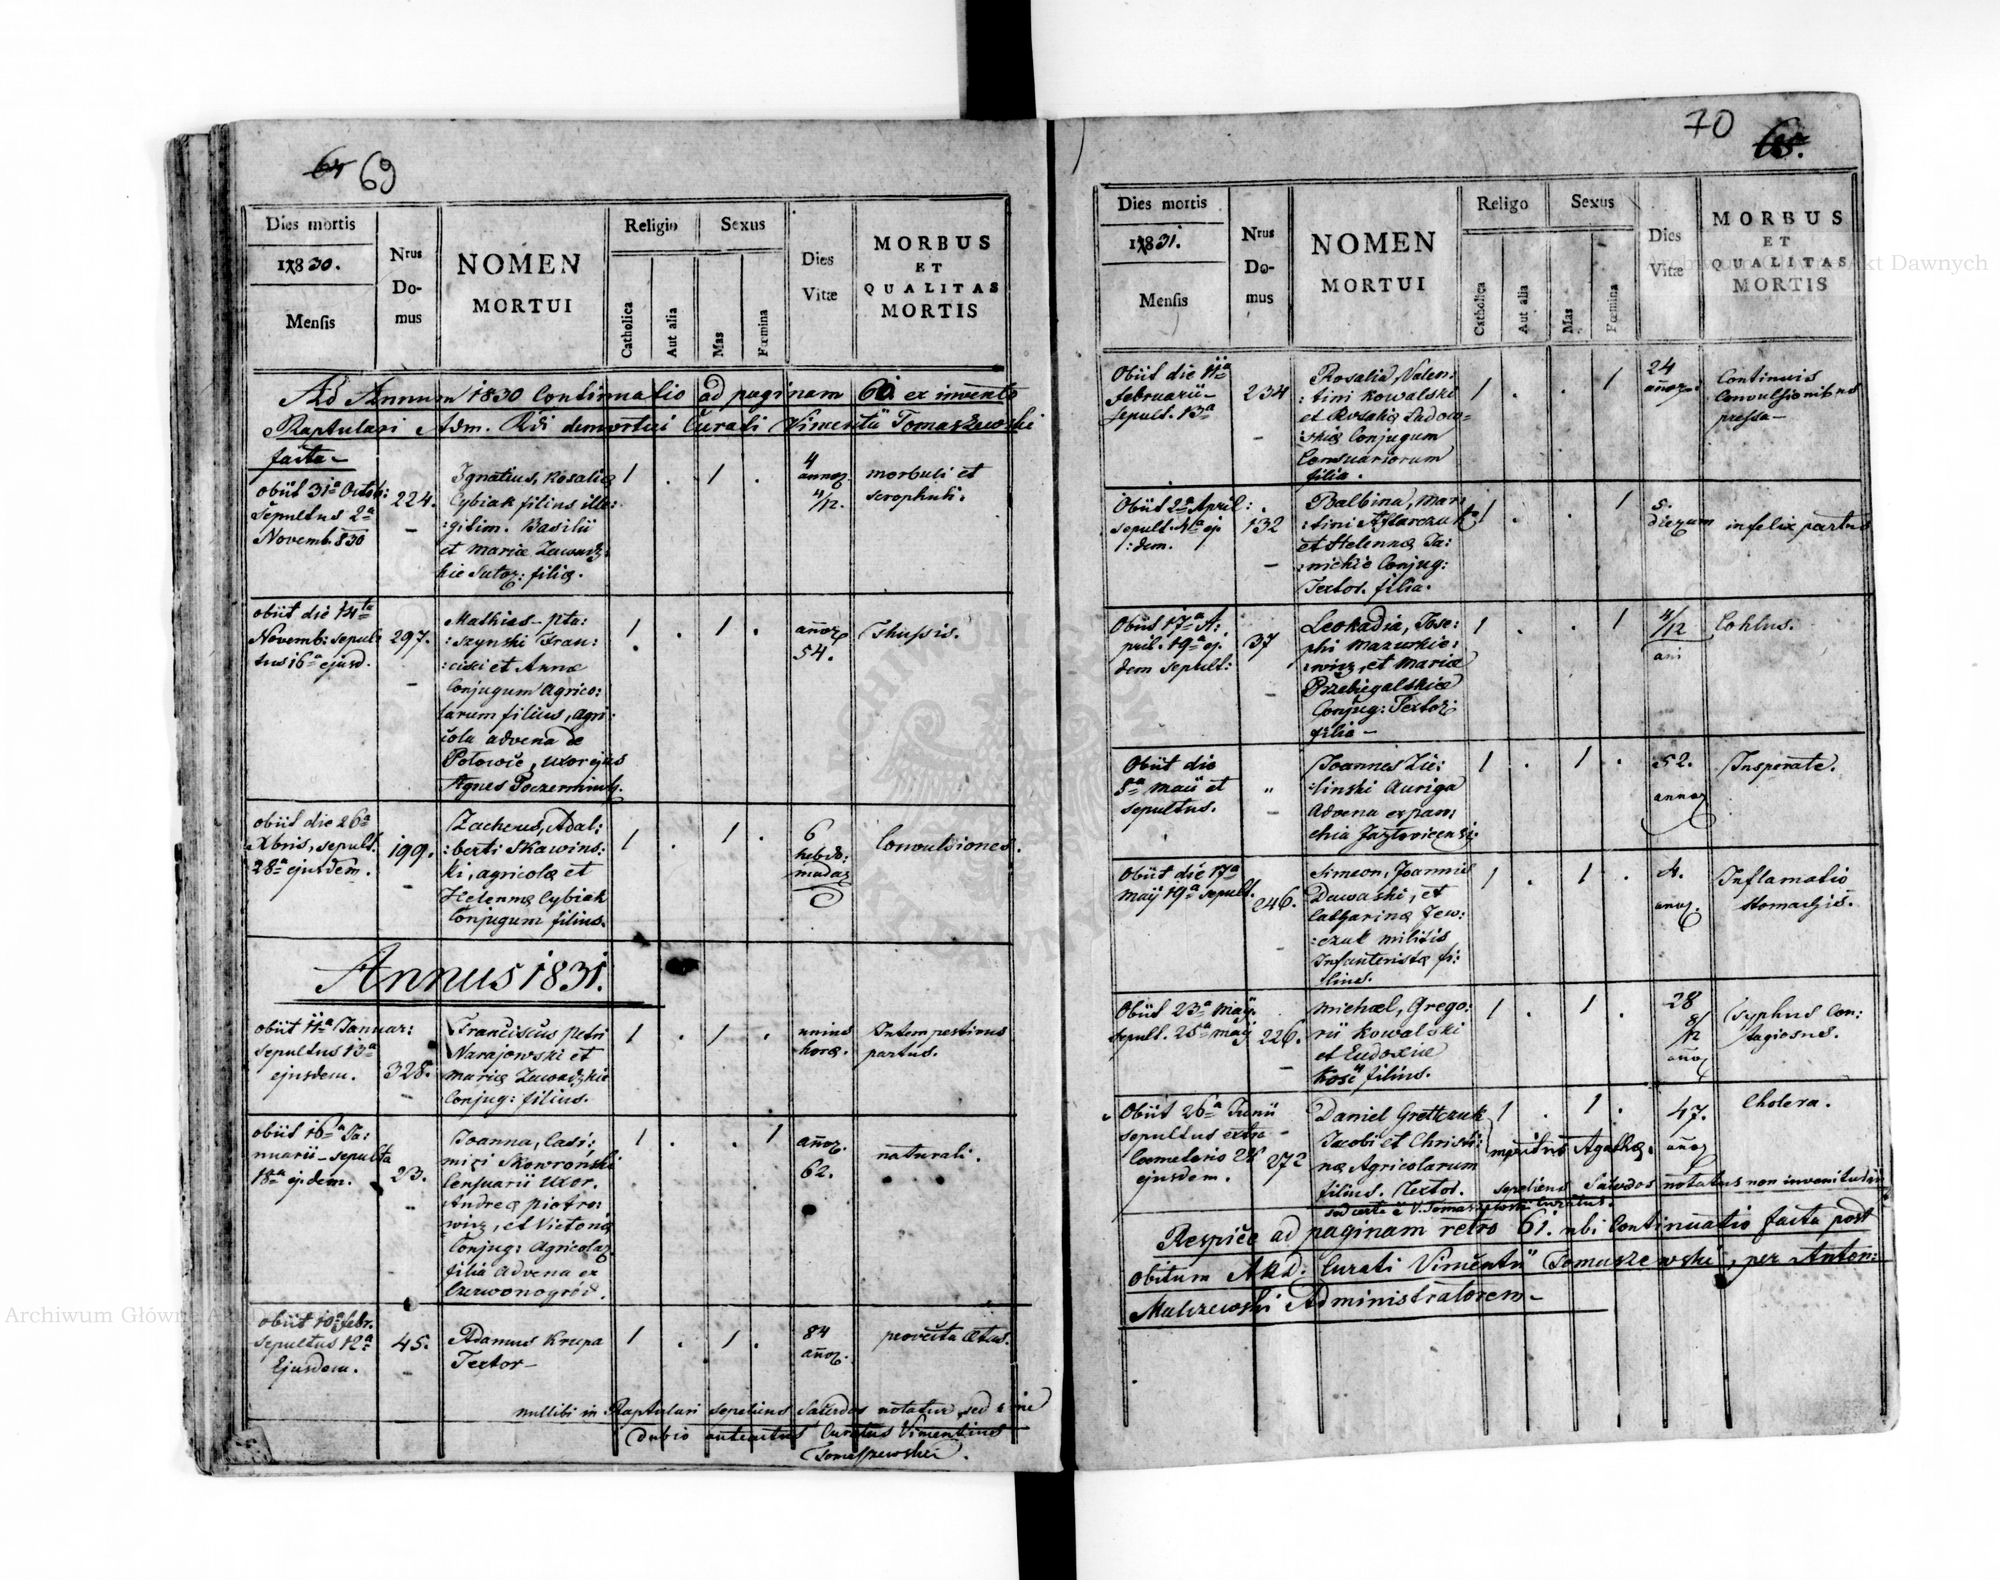 64 69
Dies mortis
1830.
Mensis
Nrus
Do-
mus
NOMEN
MORTUI
Religio
Catholica
Aut alia
Sexus
Mas
Fœmina
Dies
Vitæ
MORBUS
ET
QUALITAS
MORTIS
Ad Annum 1830 Continuatio ad paginam 60. ex invento
Raptulari Adm. Rdi demortui Curati Vincentii Tomaszewski
facta—
obiit 31a Octob:
Sepultus 2a
Novemb. 830
224.
Ignatius, Rosaliæ
Cybiak filius ille:
:gitim. Basilii
et Mariæ Zawadz
kie Sutor: filiæ.
1 . 1 .
4
annor
4/12.
morbuli et
scrophuli.
obiit die 14ta
Novemb: sepul:
tus 16a ejusd.
297.
Mathias Pta:
:szynski Fran:
:cisci et Annæ
Conjugum Agrico:
larum filius, agri:
cola advena de
Potowce, uxor ejus
Agnes
1 . 1 .
añor
54.
Thussis.
obiit die 26a
Xbris, sepult.
28a ejusdem.
199.
Zacheus, Adal:
:berti Skawins:
ki, agricolæ et
Helennæ Cybiak
Conjugum filius.
1 . 1 .
6
hebdo:
madar
Convulsiones.
Annus 1831.
obiit 11a Januar:
sepultus 13a
ejusdem.
328.
Franciscus Petri
Narajowski et
Mariæ Zawadzkie
Conjug: filius.
1 . 1 .
unius
horæ.
Intempestivus
partus.
obiit 16a Ja:
nuarii sepulta
18a ejdem.
23.
Joanna, Casi:
miri Skowroński
Censuarii uxor.
Andreæ Piotro:
wicz, et Victoriæ
Conjug: Agricolar
filia advena ex
Czerwonogród.
1 . . 1
añor.
62.
naturali.
obiit 10a febr.
sepultus 12a
Ejusdem.
45.
Adamus Krupa
Textor—
1 . 1 .
84
añor.
provecta ætas.
nullibi in Raptulari sepeliens Sacerdos notatur, sed sine
dubio Curatus Vincentius
Tomaszewski.
70 65.
Dies mortis
1831.
Mensis
Nrus
Do-
mus
NOMEN
MORTUI
Religo
Catholica
Aut alia
Sexus
Mas
Fœmina
Dies
Vitæ
MORBUS
ET
QUALITAS
MORTIS
Obiit die 11a
februarii
sepult. 13a
234
Rosalia, Valen:
:tini Kowalski
et Rosaliæ Sadow:
:skiæ Conjugum
Censuariorum
filia.
1 . . 1
24
añor.
Continuis
Convulsionibus
pressa—
Obiit 2a April:
sepult. 4a ej
:dem.
132
Balbina, Mar:
:tini Aftarczuk
et Helennæ Ja:
:nickie Conjug:
Textor. filia.
1 . . 1
5.
dierum
infelix partus
Obiit 17a A:
pril. 19a ej.
dem sepult:
37
Leokadia, Jose:
phi Mazurkie:
:wicz, et Mariæ
Przebiegalskiæ
Conjug: Textor:
filia—
1 . . 1
4/12
ani
Cohlus.
Obiit die
5a Maii et
sepultus.
"
Joannes Zie:
linski Auriga
Advena ex paro:
chia Jazłovicensi
1 . 1 .
52.
annor
Insperate.
Obiit die 17a
Maij 19a sepult.
246.
Simeon, Joannis
Duwaski, et
Catharinæ Jew:
:czuk militis
Infanteristæ fi:
lius.
1 . 1 .
4.
annor.
Inflamatio
stomachis.
Obiit 23a Maij
sepult. 25a Maij
226.
Michæl, Grego:
rii Kowalski
et Eudoxiæ
Kosć filius.
1 . 1 .
28
8/12
añor
Typhus Con:
tagiosus.
Obiit 26a Junii
sepultus extra
Coemeterio
ejusdem.
272
Daniel Grettczuk
Jacobi et Christi:
næ Agricolarum
filius. Textor.
1 . 1 .
maritus Agathæ.
47.
añor
Cholera.
sepeliens Sacerdos notatus non invenitur
sed certe Curatus.
Respice ad paginam retro 61. ubi Continuatio facta post
obitum ARd. Curati Vincentii Tomaszewski, per Anton:
Malczewski Administratorem—
Archiwum Główne Akt Dawnych
Archiwum Główne Akt Dawnych